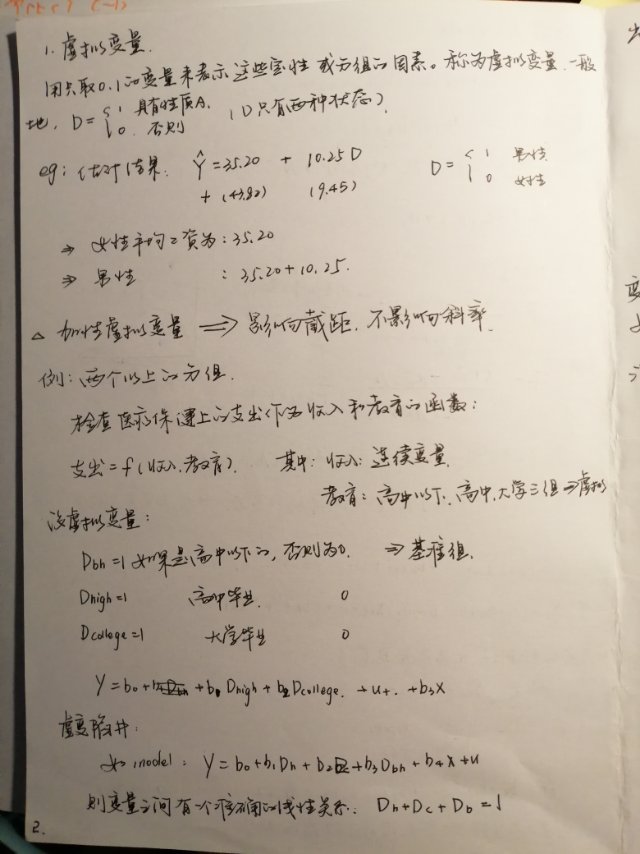 1. 虚拟变量.
用只取0.1的变量来表示这些定性或分组的因素。称为虚拟变量.一般
地, D = { 1 具有性质A. 0. 否则 (D只有两种状态)
eg: 估计结果. Ŷ = 35.20 + 10.25 D D = { 1 男性 0 女性
t (43.82) (9.45)
⇒ 女性平均工资为: 35.20
⇒ 男性 : 35.20+10.25.
△ 加性虚拟变量 ⇒ 影响截距. 不影响斜率.
例: 两个以上的分组.
检查医疗保健上的支出作为收入和教育的函数:
支出 = f(收入, 教育). 其中: 收入: 连续变量.
教育: 高中以下, 高中, 大学三组⇒虚拟
设虚拟变量:
Dbh = 1 如果是高中以下的, 否则为0. ⇒ 基准组.
Dhigh = 1 高中毕业. 0
Dcollege = 1 大学毕业 0
Y = b0 + b1 Dhigh + b2 Dcollege. + u + b3X
虚变陷井:
如 model: Y = b0 + b1Dh + b2 + b3Dbh + b4X + u
则变量之间有一个准确的线性关系. Dh + Dc + Db = 1
2.